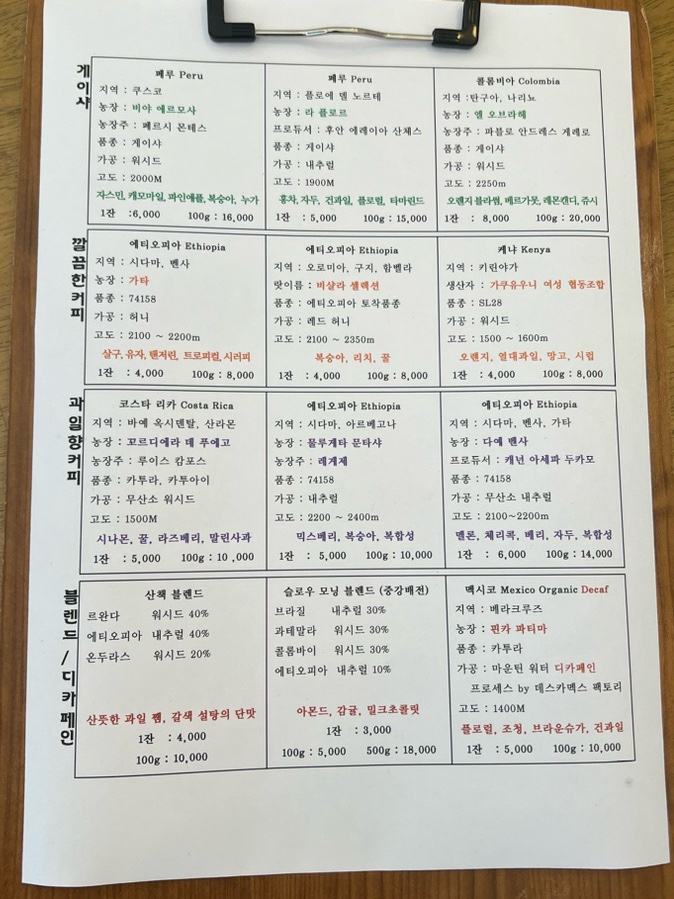 게이샤
페루 Peru
지역 : 쿠스코
농장 : 비야 에르모사
농장주 : 페르시 몬테스
품종 : 게이샤
가공 : 워시드
고도 : 2000M
자스민, 캐모마일, 파인애플, 복숭아, 누가
1잔 :6,000 100g : 16,000
페루 Peru
지역 : 플로에 델 노르테
농장 : 라 플로르
프로듀서 : 후안 에레이아 산체스
품종 : 게이샤
가공 : 내추럴
고도 : 1900M
홍차, 자두, 건과일, 플로럴, 타마린드
1잔 : 5,000 100g : 15,000
콜롬비아 Colombia
지역 :탄구아, 나리뇨
농장 : 엘 오브라헤
농장주 : 파블로 안드레스 게레로
품종 : 게이샤
가공 : 워시드
고도 : 2250m
오랜지 블라썸, 베르가못, 레몬캔디, 쥬시
1잔 : 8,000 100g : 20,000
깔끔한커피
에티오피아 Ethiopia
지역 : 시다마, 벤사
농장 : 가타
품종 : 74158
가공 : 허니
고도 : 2100 ~ 2200m
살구, 유자, 탠저린, 트로피컬, 시러피
1잔 : 4,000 100g : 8,000
에티오피아 Ethiopia
지역 : 오로미아, 구지, 함벨라
랏이름 : 비살라 셀렉션
품종 : 에티오피아 토착품종
가공 : 레드 허니
고도 : 2100 ~ 2350m
복숭아, 리치, 꿀
1잔 : 4,000 100g : 8,000
케냐 Kenya
지역 : 키린야가
생산자 : 가쿠유우니 여성 협동조합
품종 : SL28
가공 : 워시드
고도 : 1500 ~ 1600m
오렌지, 열대과일, 망고, 시럽
1잔 : 4,000 100g : 8,000
과일향커피
코스타 리카 Costa Rica
지역 : 바예 옥시덴탈, 산라몬
농장 : 꼬르디에라 데 푸에고
농장주 : 루이스 캄포스
품종 : 카투라, 카투아이
가공 : 무산소 워시드
고도 : 1500M
시나몬, 꿀, 라즈베리, 말린사과
1잔 : 5,000 100g : 10 ,000
에티오피아 Ethiopia
지역 : 시다마, 아르베고나
농장 : 물루게타 문타샤
농장주 : 레게제
품종 : 74158
가공 : 내추럴
고도 : 2200 ~ 2400m
믹스베리, 복숭아, 복합성
1잔 : 5,000 100g : 10,000
에티오피아 Ethiopia
지역 : 시다마, 벤사, 가타
농장 : 다예 벤사
프로듀서 : 캐넌 아세파 두카모
품종 : 74158
가공 : 무산소 내추럴
고도 : 2100~2200m
멜론, 체리콕, 베리, 자두, 복합성
1잔 : 6,000 100g : 14,000
블렌드/디카페인
산책 블렌드
르완다 워시드 40%
에티오피아 내추럴 40%
온두라스 워시드 20%
산뜻한 과일 잼, 갈색 설탕의 단맛
1잔 : 4,000
100g : 10,000
슬로우 모닝 블렌드 (중강배전)
브라질 내추럴 30%
과테말라 워시드 30%
콜롬바이 워시드 30%
에티오피아 내추럴 10%
아몬드, 감귤, 밀크초콜릿
1잔 : 3,000
100g : 5,000 500g : 18,000
멕시코 Mexico Organic Decaf
지역 : 베라크루즈
농장 : 핀카 파티마
품종 : 카투라
가공 : 마운틴 워터 디카페인
프로세스 by 데스카멕스 팩토리
고도 : 1400M
플로럴, 조청, 브라운슈가, 건과일
1잔 : 5,000 100g : 10,000